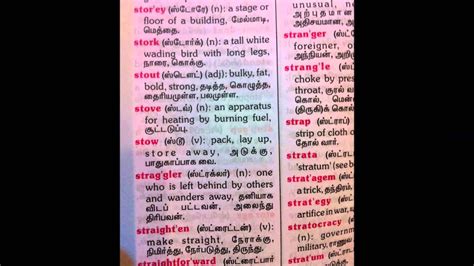 stor'ey (ஸ்டோரே) (n): a stage or
floor of a building, மேல்மாடி,
மெத்தை.
stork (ஸ்டோர்க்) (n): a tall white
wading bird with long legs,
நாரை, கொக்கு.
stout (ஸ்டௌட்) (adj): bulky, fat,
bold, strong, தடித்த, கொழுத்த,
தைரியமுள்ள, பலமுள்ள.
stove (ஸ்டவ்) (n): an apparatus
for heating by burning fuel,
சூட்டடுப்பு.
stow (ஸ்டூ) (v): pack, lay up,
store away, அடுக்கு,
பாதுகாப்பாக வை.
strag'gler (ஸ்ட்ரக்லர்) (n): one
who is left behind by others
and wanders away, தனியாக
விடப் பட்டவன், அலைந்து
திரிபவன்.
straight'en (ஸ்ட்ரைட்டன்) (v):
make straight, நேராக்கு,
நிமிர்த்து, நேர்படுத்து, திருந்து.
straightfor'ward (ஸ்ட்ரைட்பார்
unusual, ne
அற்புதமான
அதிசயமான,
stran'ger (
foreigner, o
அந்நியன், அறி
stran'gle (
choke by pres
throat, குரல்
கொல், மென்
(திருகி) கொல்
strap (ஸ்ட்ராப்)
strip of cloth o
தோல் வார்,
strata (ஸ்ட்ரா
'stratum' (see b
strat'agem (ஸ்
a trick, தந்திரம்,
strat'egy (ஸ்
artifice in war,
stratocracy (ஸ்
(n): governm
military, ராணுவ
strat'um (ஸ்ட்